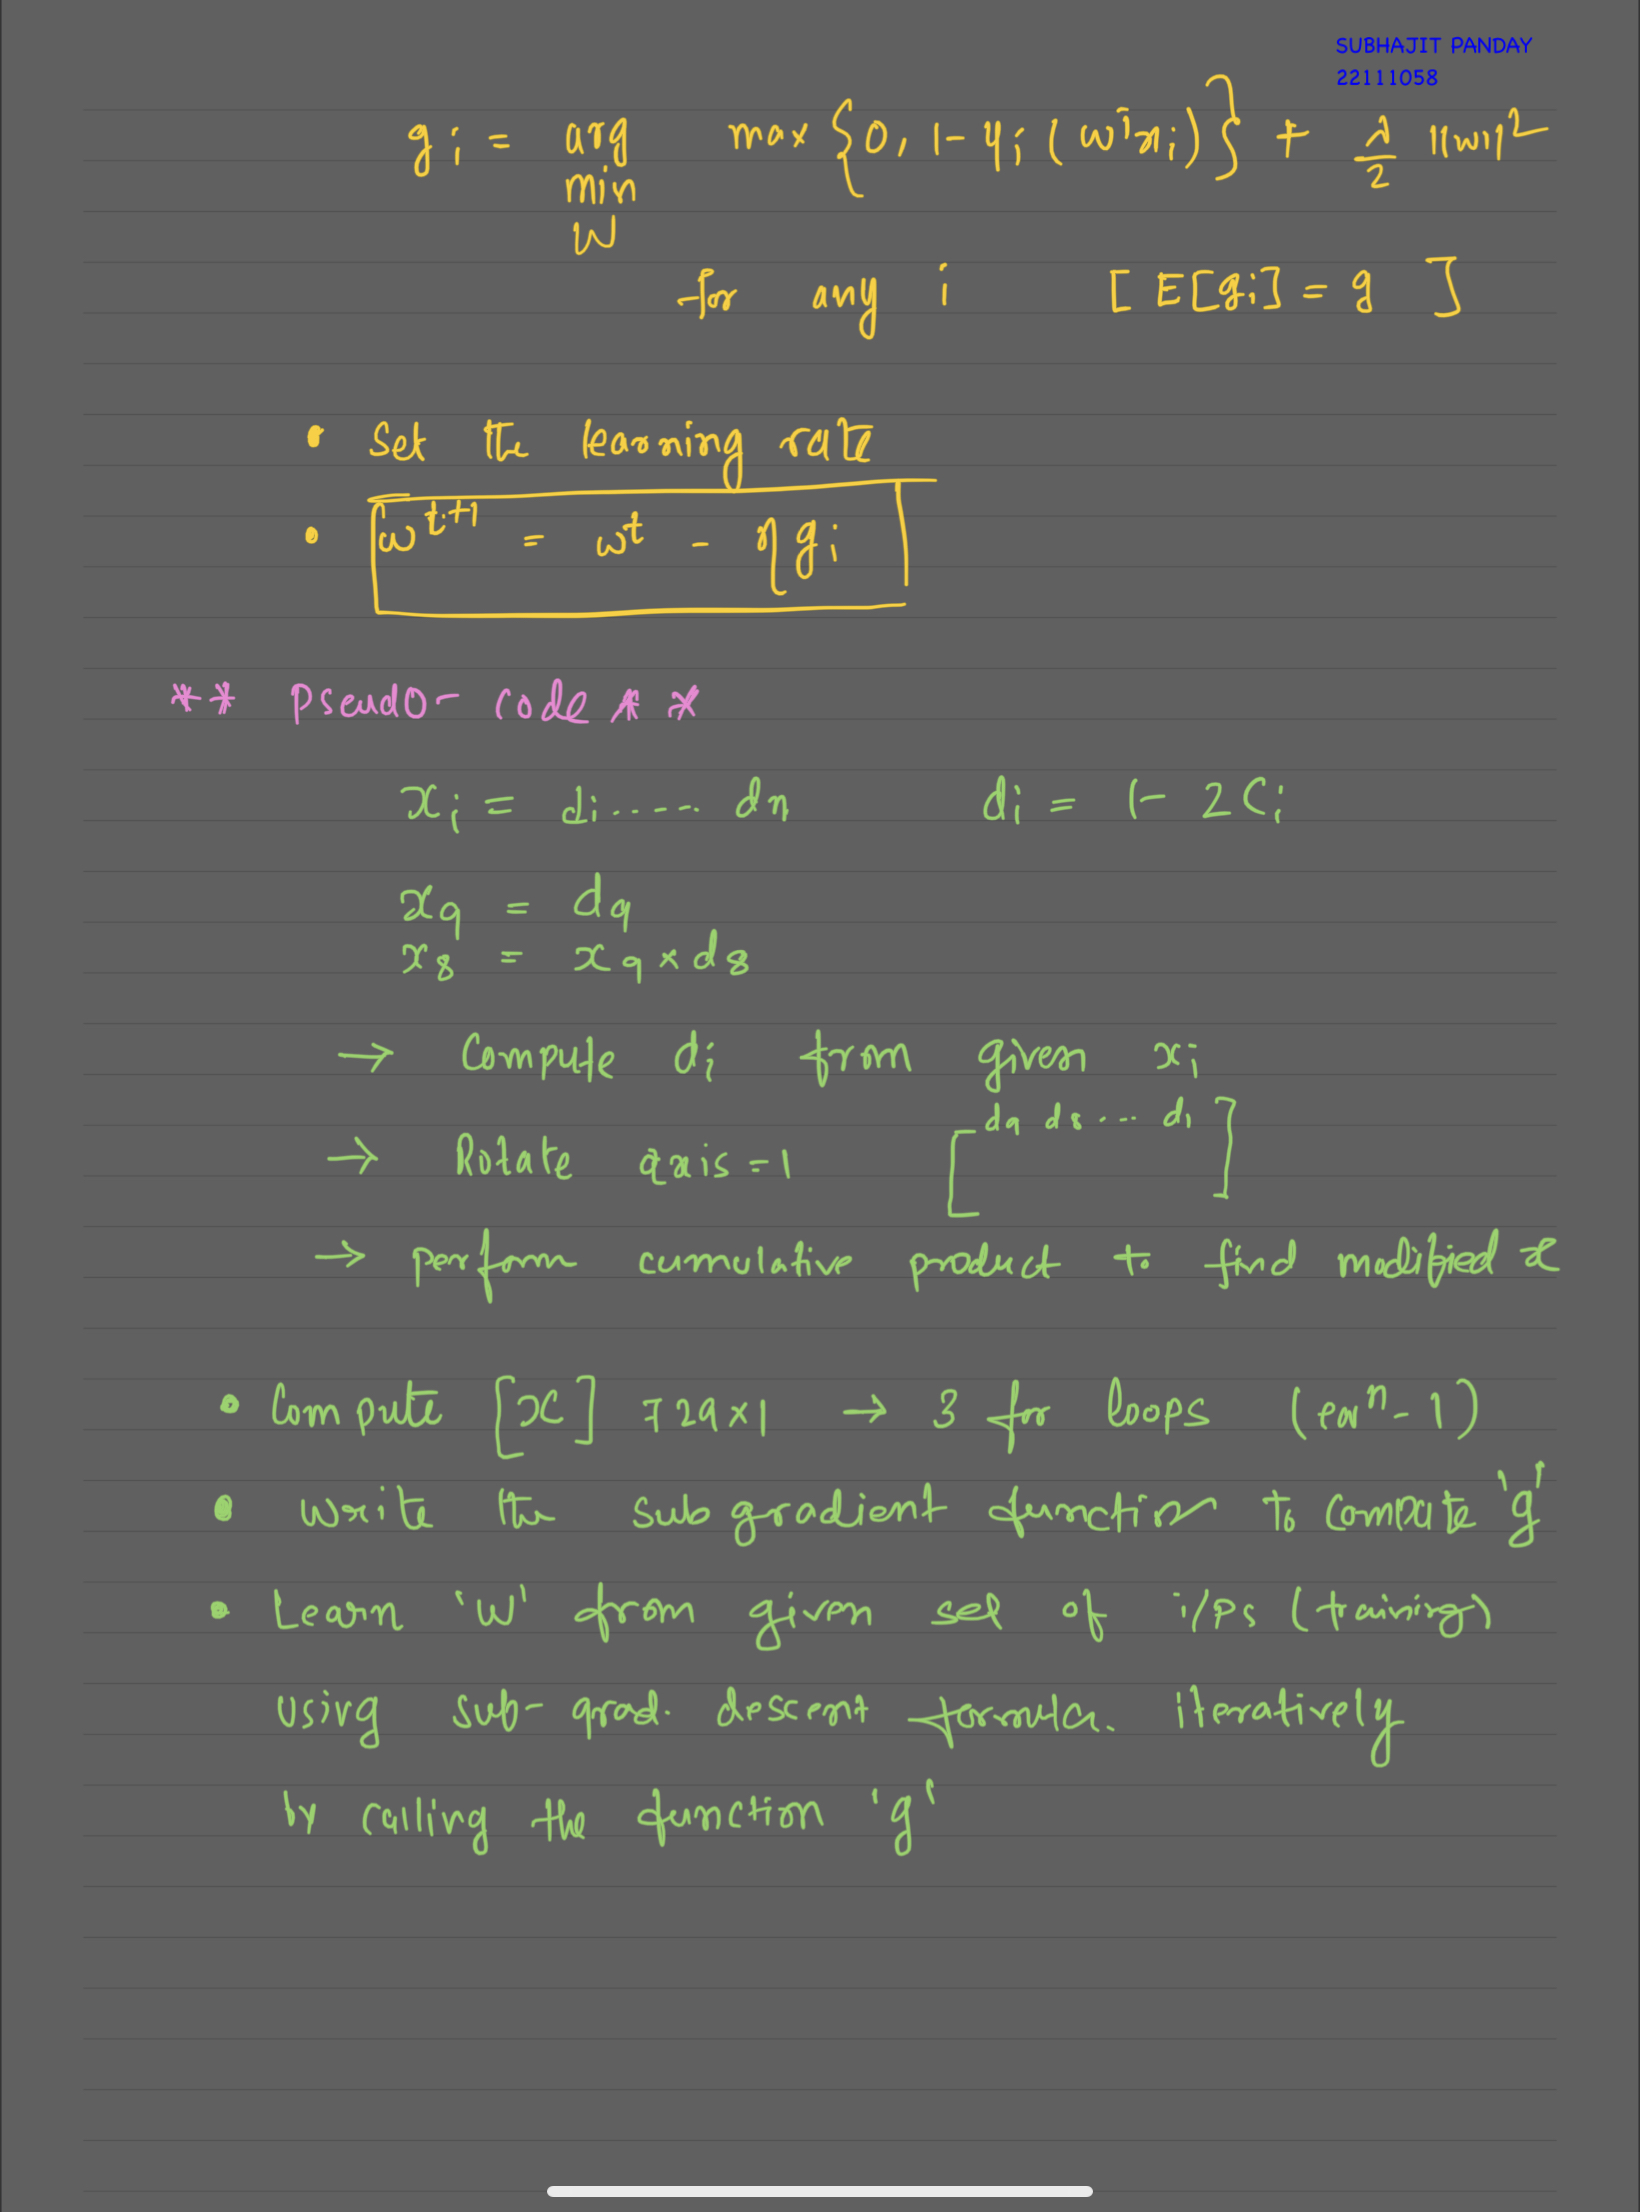 SUBHAJIT PANDAY
22111058
gi = arg min W max {0, 1 - yi (wᵀxi)} + λ/2 ||w||²
for any i [ E[gi] = g ]
• Set the learning rate
• w^{t+1} = w^t - η gi
** Pseudo-code **
xi = di ..... dn di = 1 - 2Ci
x9 = d9
x8 = x9 × d8
→ Compute di from given xi
→ Rotate axis = 1 [ d9 d8 ... d1 ]
→ perform cumulative product to find modified x
• Compute [x] 729×1 → 3 for loops (eqⁿ - 1)
• Write the sub gradient function to compute 'g'
• Learn 'W' from given set of i/ps (training)
using sub-grad. descent formula. iteratively
by calling the function 'g'